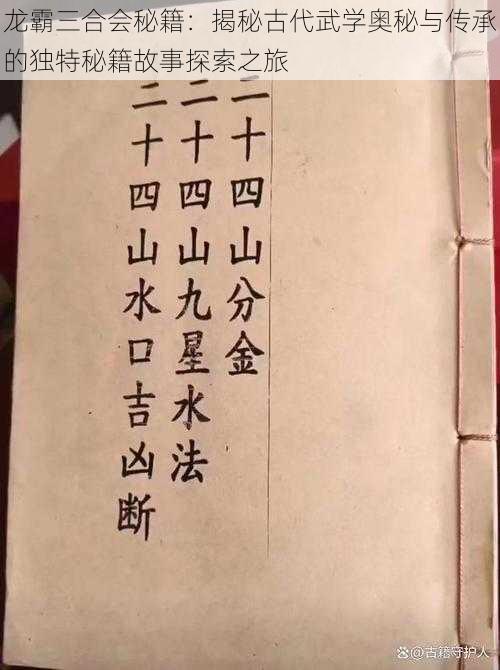 龙霸三合会秘籍：揭秘古代武学奥秘与传承
的独特秘籍故事探索之旅
二十四山分金
二十四山九星水法
二十四山水口吉凶断
@古籍守护人